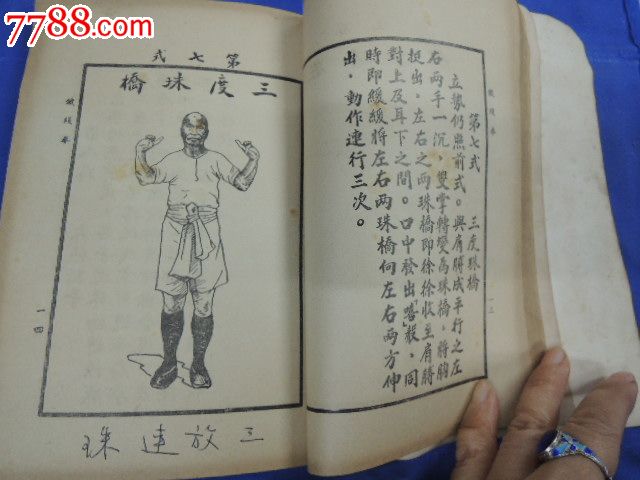 7788.com
鐵線拳
一三
第七式 三度珠橋
立勢仍照前式。與肩膊成平行之左
右兩手一沉，雙掌轉變為珠橋，將胸
挺出。左右之兩珠橋即徐徐收至肩膊
對上及耳下之間。口中發出「嘻」聲，同
時即緩緩將左右兩珠橋向左右兩方伸
出。動作連行三次。
第七式
三度珠橋
三放連珠
鐵線拳
一四